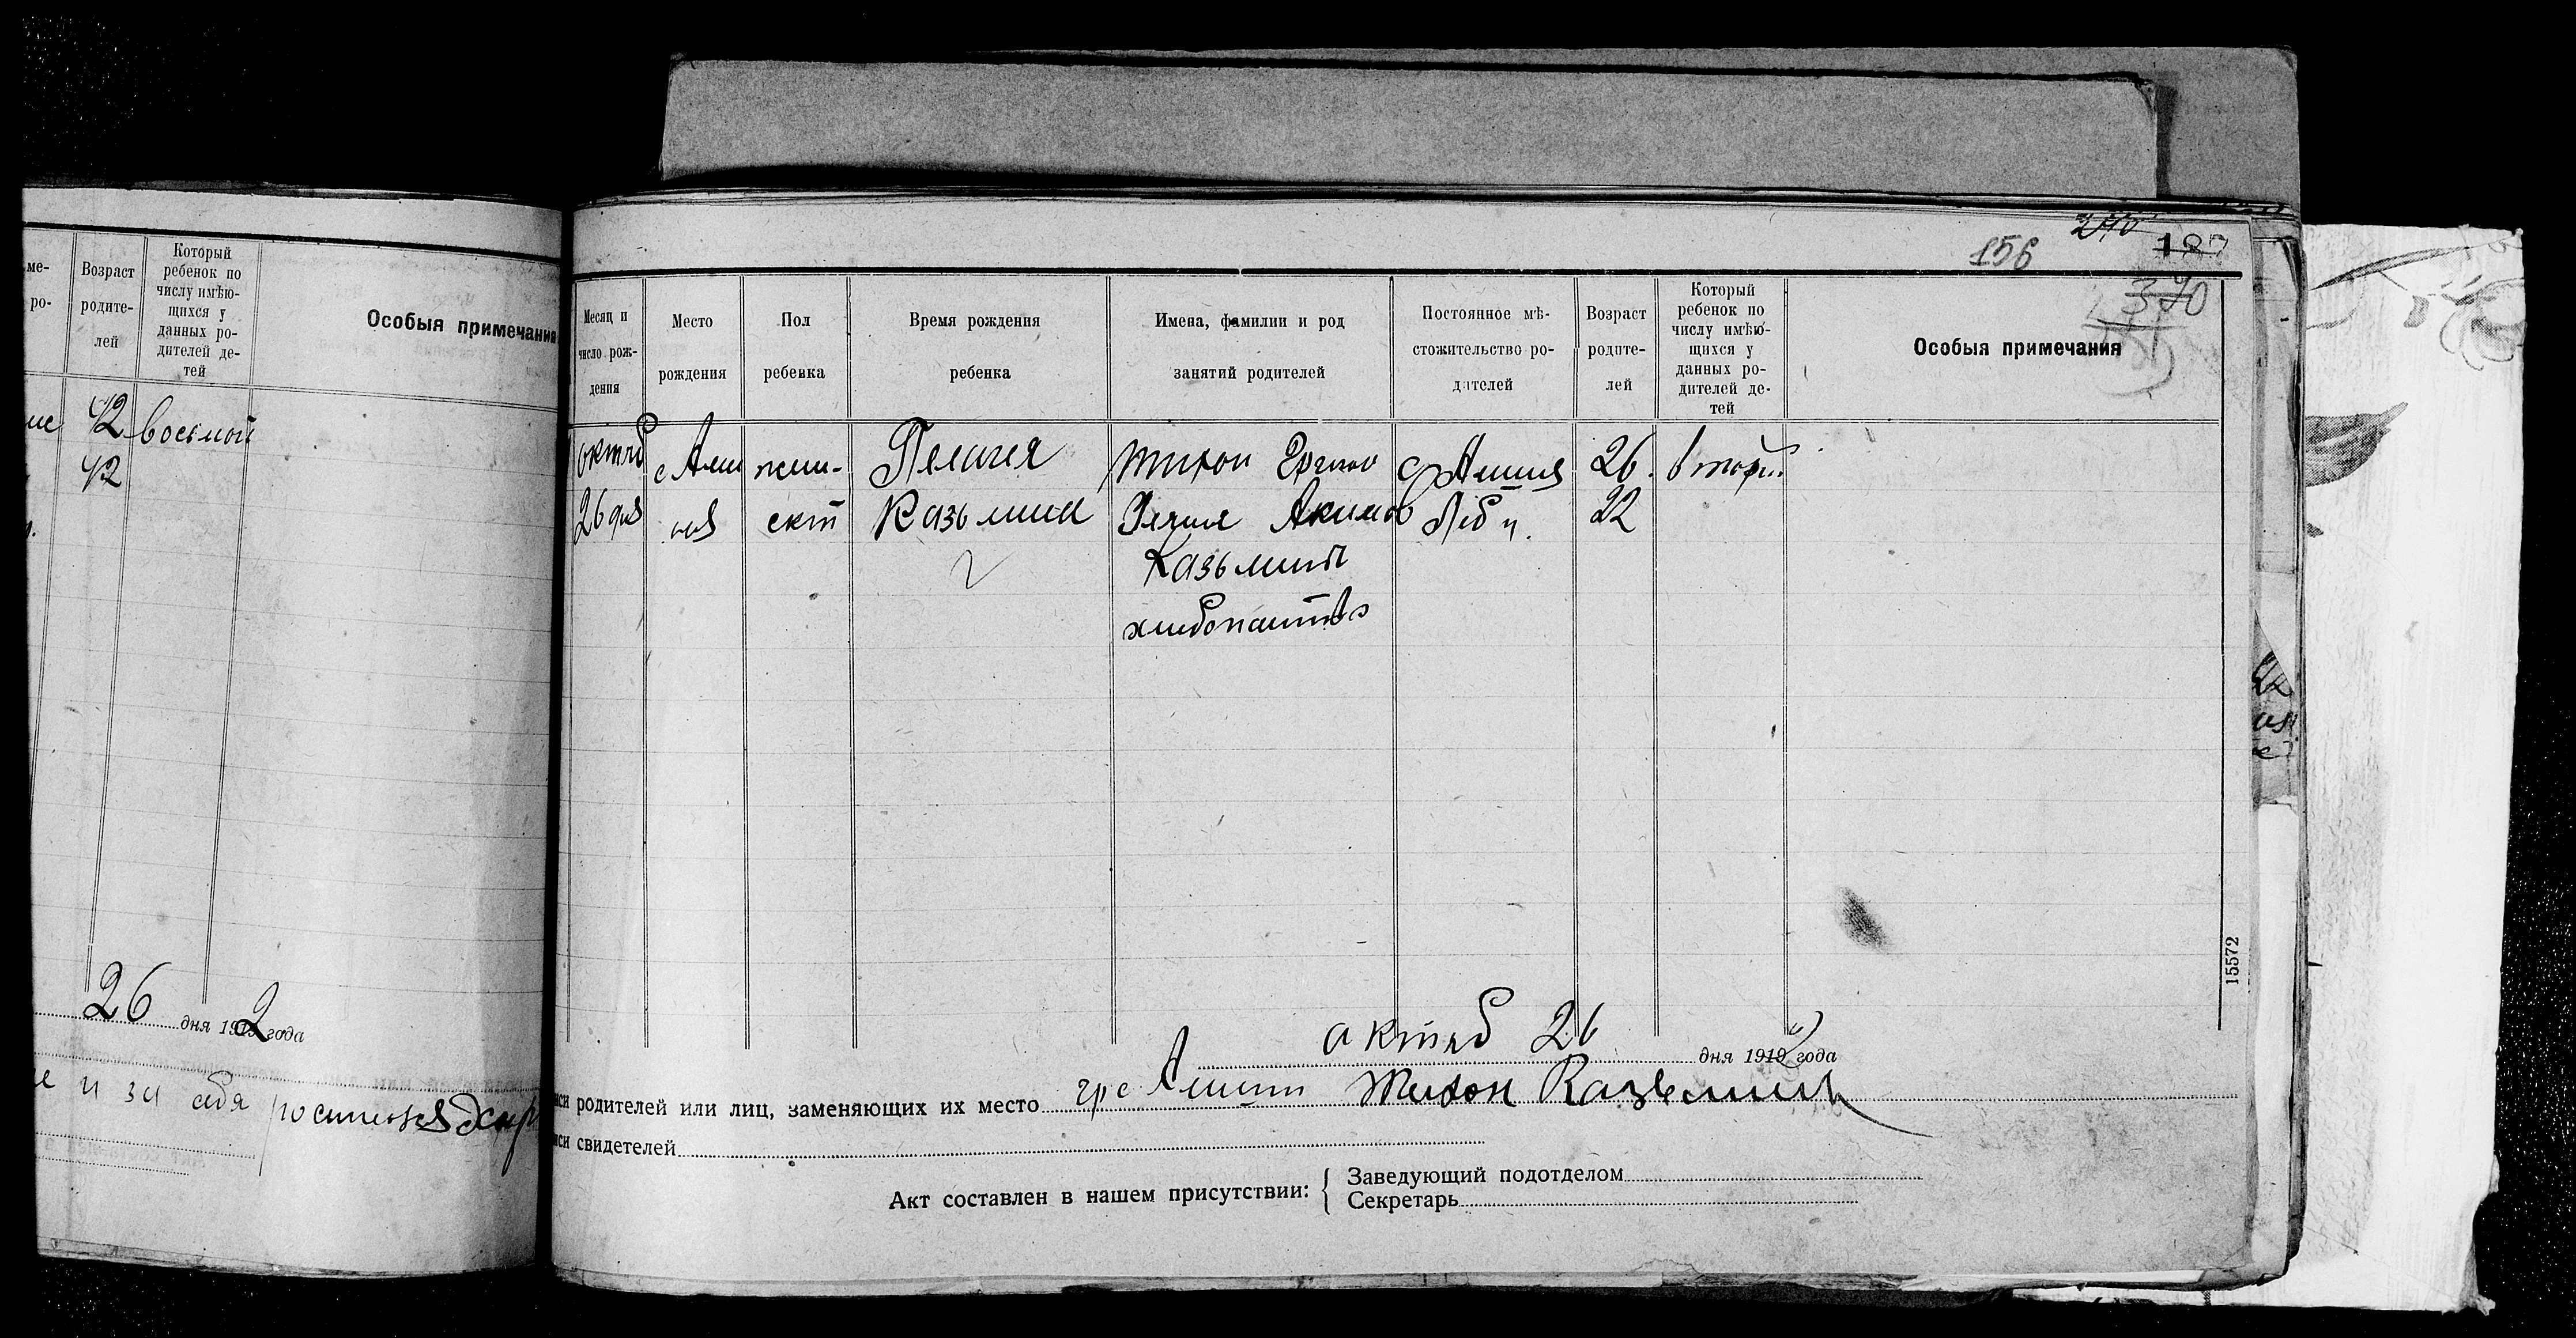 ме-
ро-
Возраст
родите-
лей
Который
ребенок по
числу имѣю-
щихся у
данных ро-
дителей де-
тей
Особыя примечания
42 восьмой
42
26 дня 192 года
и за себя
156
187
370
Месяц и
число рож-
дения
Место
рождения
Пол
ребенка
Время рождения
ребенка
Имена, фамилии и род
занятий родителей
Постоянное мѣ-
стожительство ро-
дителей
Возраст
родите-
лей
Который
ребенок по
числу имѣю-
щихся у
данных ро-
дителей де-
тей
Особыя примечания
октяб
26 дня
жен-
скт
Пелагея
Казьмина
Тихон
Акимов
Казьмины
26
22
15572
октяб 26 дня 1919 года
родителей или лиц, заменяющих их место Тихон Казьмин
свидетелей
Акт составлен в нашем присутствии:
Заведующий подотделом
Секретарь